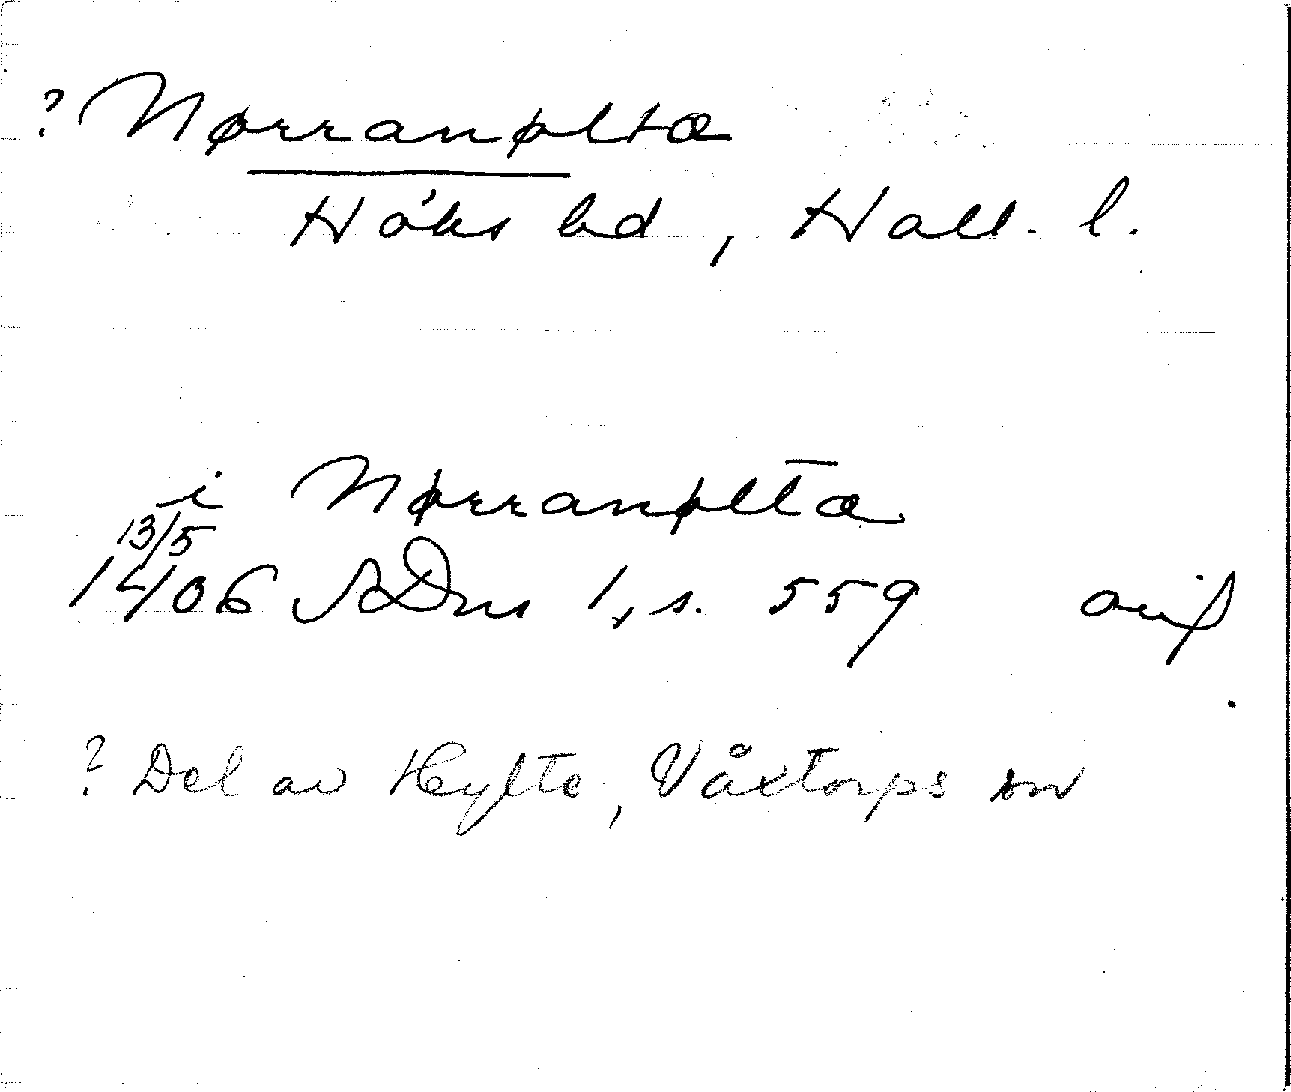 ? Nørranøltæ
Höks hd, Hall. l.
i Nørranøltæ
13/5
1406 SDns 1, s. 559 avs
? Del av Hylte, Våxtorps sn